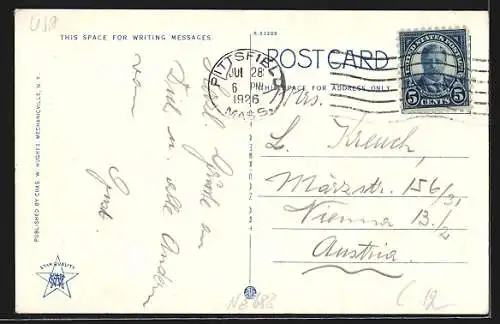 USA
THIS SPACE FOR WRITING MESSAGES.
A-31223
POST CARD
THIS SPACE FOR ADDRESS ONLY.
PITTSFIELD
JUL 28
6 PM
1926
MASS.
UNITED STATES POSTAGE
5 CENTS 5
PUBLISHED BY CHAS. W. HUGHES, MECHANICVILLE, N.Y.
Grüsse an
Dich u. alle Andern
von
Mrs.
L. Kreuch,
Märzstr. 156/31
Vienna 13./2
Austria.
STAR QUALITY